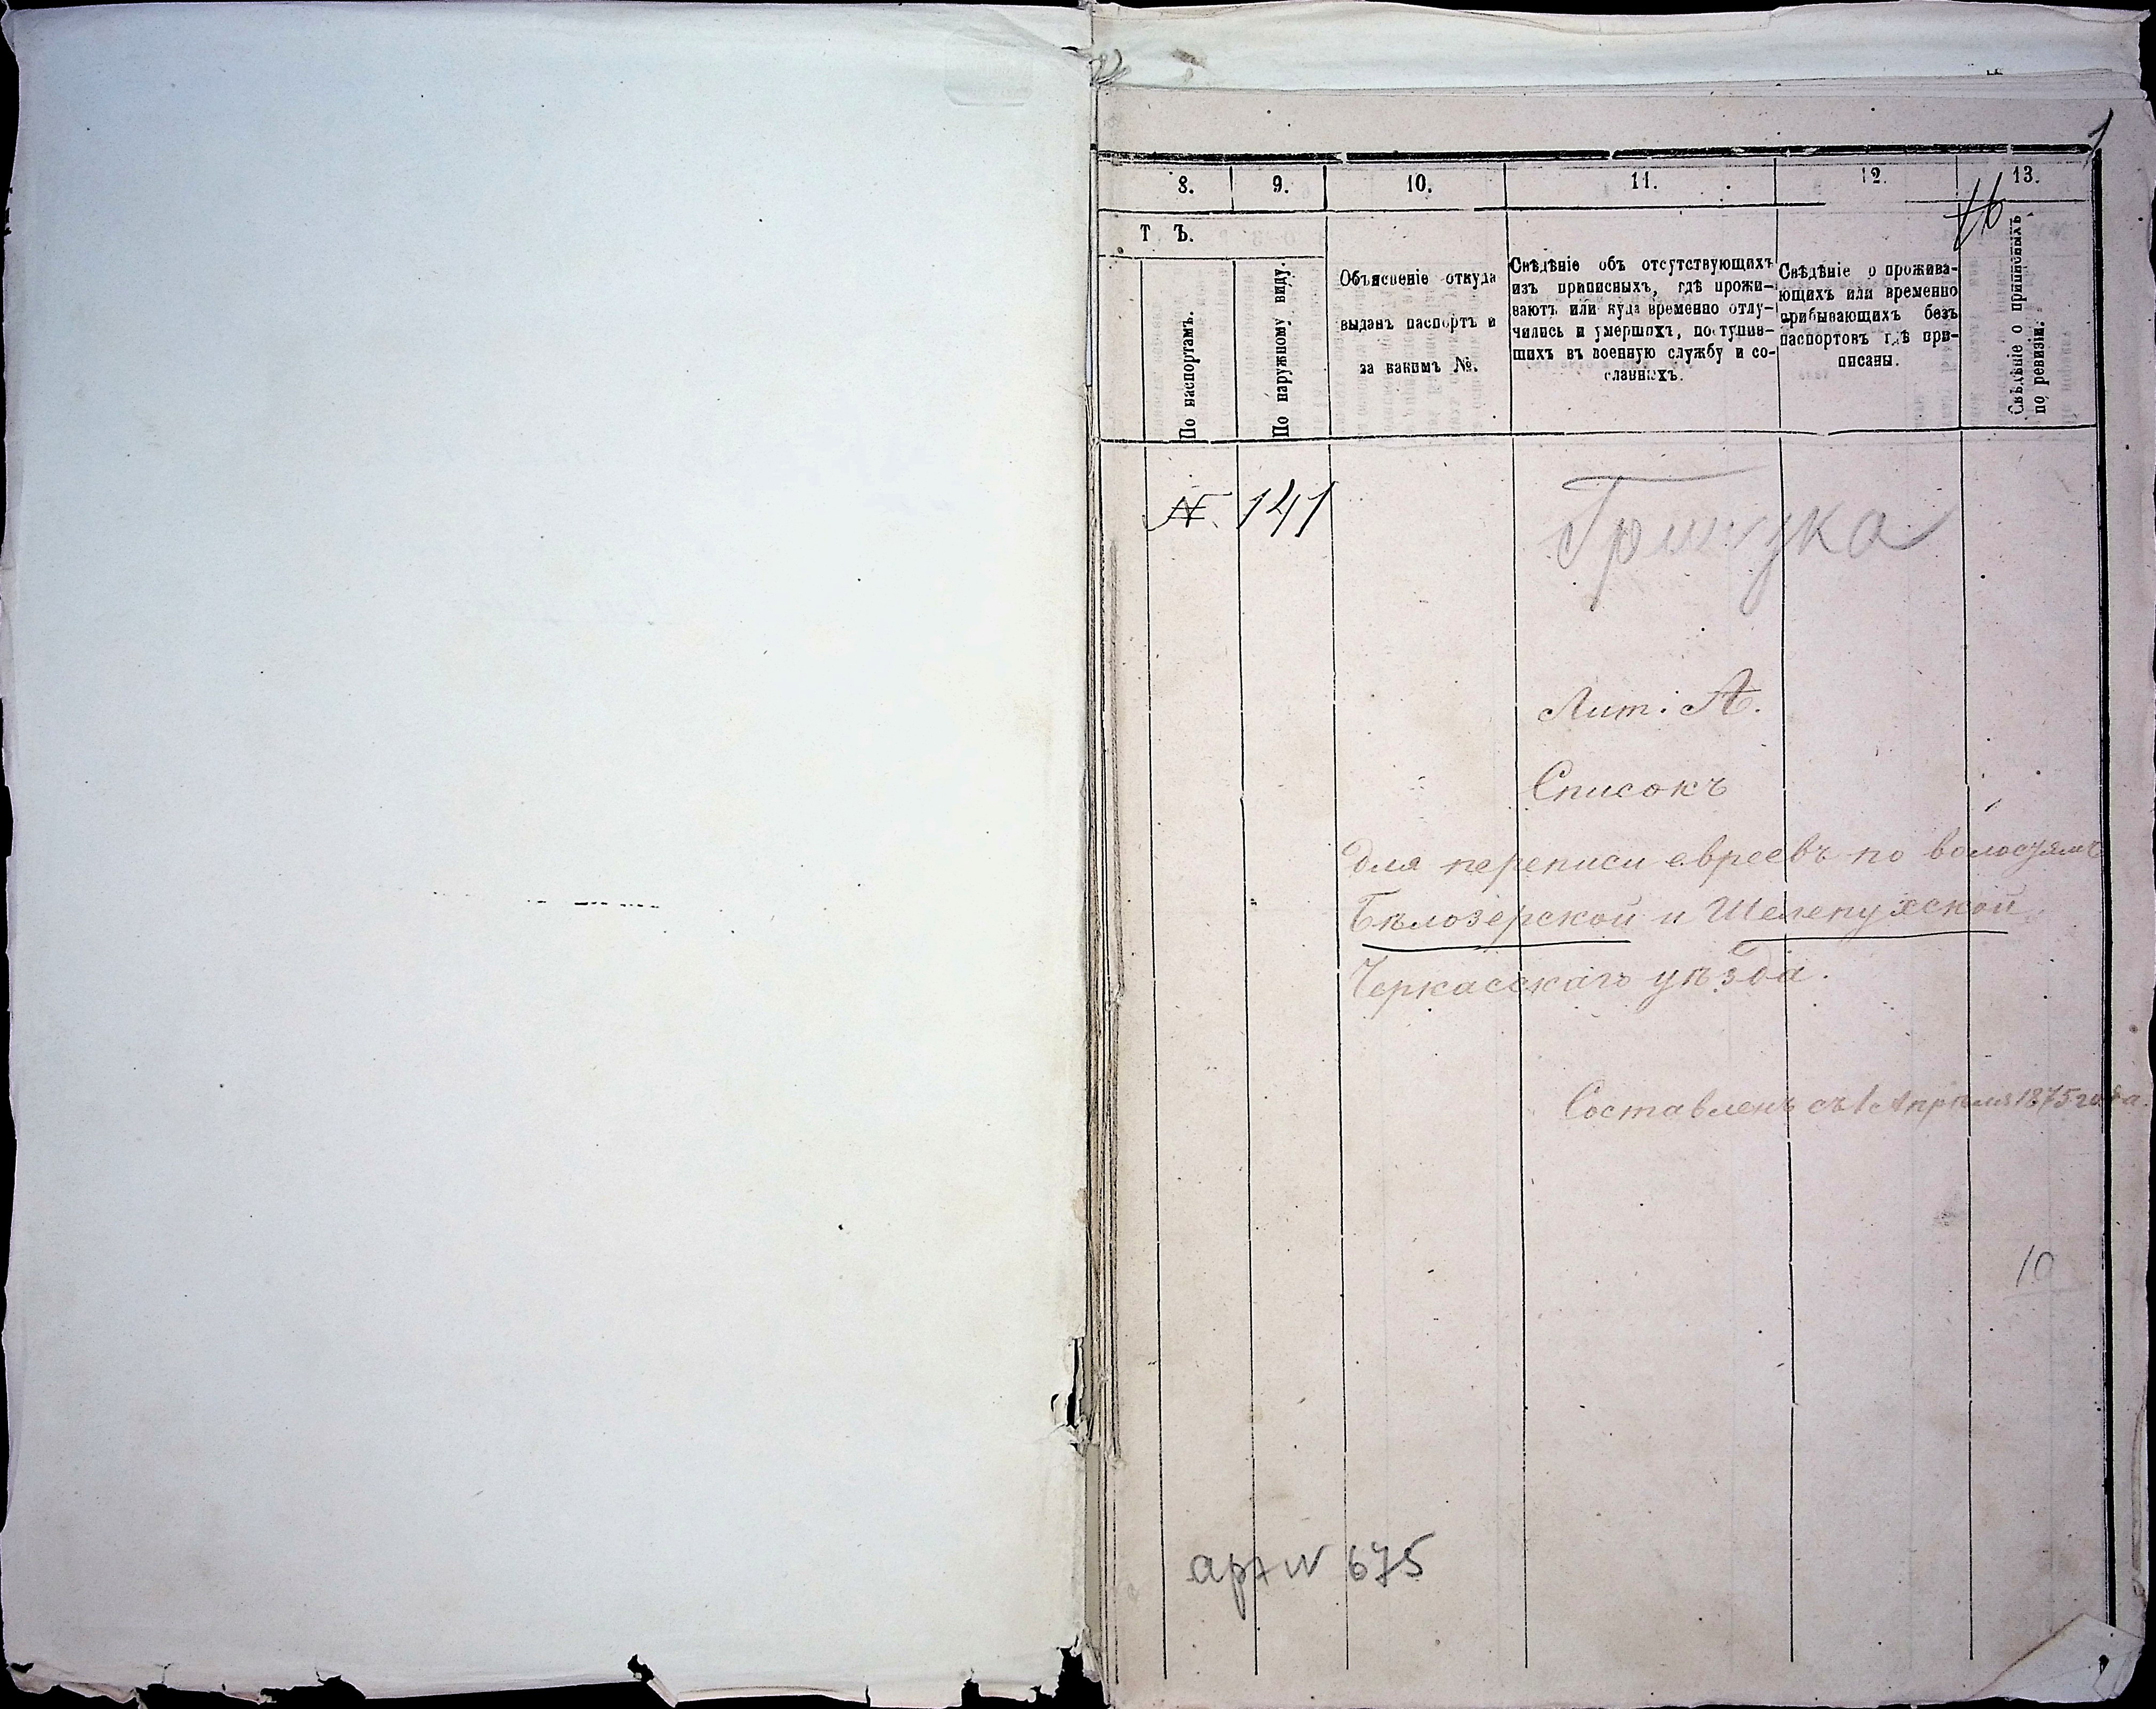 1
8. 9. 10. 11. 12. 13.
16
Т Ъ.
По паспортамъ.
По наружному виду.
Объясненіе откуда
выданъ паспортъ и
за какимъ №.
Свѣдѣніе объ отсутствующихъ
изъ приписныхъ, гдѣ прожи-
ваютъ или куда временно отлу-
чились и умершихъ, поступив-
шихъ въ военную службу и со-
сланныхъ.
Свѣдѣніе о прожива-
ющихъ или временно
прибывающихъ безъ
паспортовъ гдѣ при-
писаны.
Свѣдѣніе о приписныхъ
по ревизіи.
№. 141
Лит: А.
Списокъ
для переписи евреевъ по волостямъ
Бѣлозерской и Шелепухской
Черкасскаго уѣзда.
Составленъ съ 1 Апрѣля 1875 года.
10
арх N 675